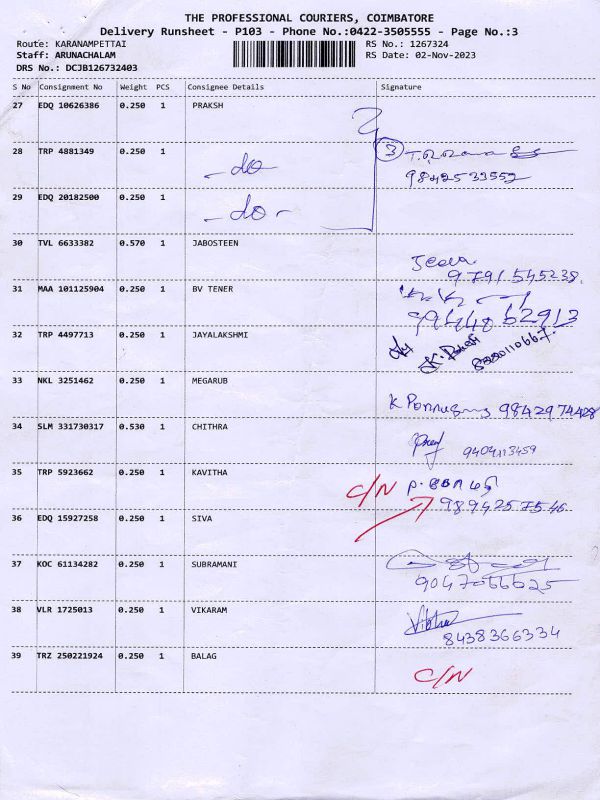 THE PROFESSIONAL COURIERS, COIMBATORE
Delivery Runsheet - P103 - Phone No.:0422-3505555 - Page No.:3
Route: KARANAMPETTAI RS No.: 1267324
Staff: ARUNACHALAM RS Date: 02-Nov-2023
DRS No.: DCJB126732403
S No Consignment No Weight PCS Consignee Details Signature
27 EDQ 10626386 0.250 1 PRAKSH
28 TRP 4881349 0.250 1 -do 3
9842533552
29 EDQ 20182500 0.250 1 -do-
30 TVL 6633382 0.570 1 JABOSTEEN
9791545238.
31 MAA 101125904 0.250 1 BV TENER
9944062913
32 TRP 4497713 0.250 1 JAYALAKSHMI
8880110667.
33 NKL 3251462 0.250 1 MEGARUB
K 9842974428
34 SLM 331730317 0.530 1 CHITHRA
9404113459
35 TRP 5923662 0.250 1 KAVITHA C/N
9894257546
36 EDQ 15927258 0.250 1 SIVA
37 KOC 61134282 0.250 1 SUBRAMANI
9047066625
38 VLR 1725013 0.250 1 VIKARAM
8438366334
39 TRZ 250221924 0.250 1 BALAG C/N